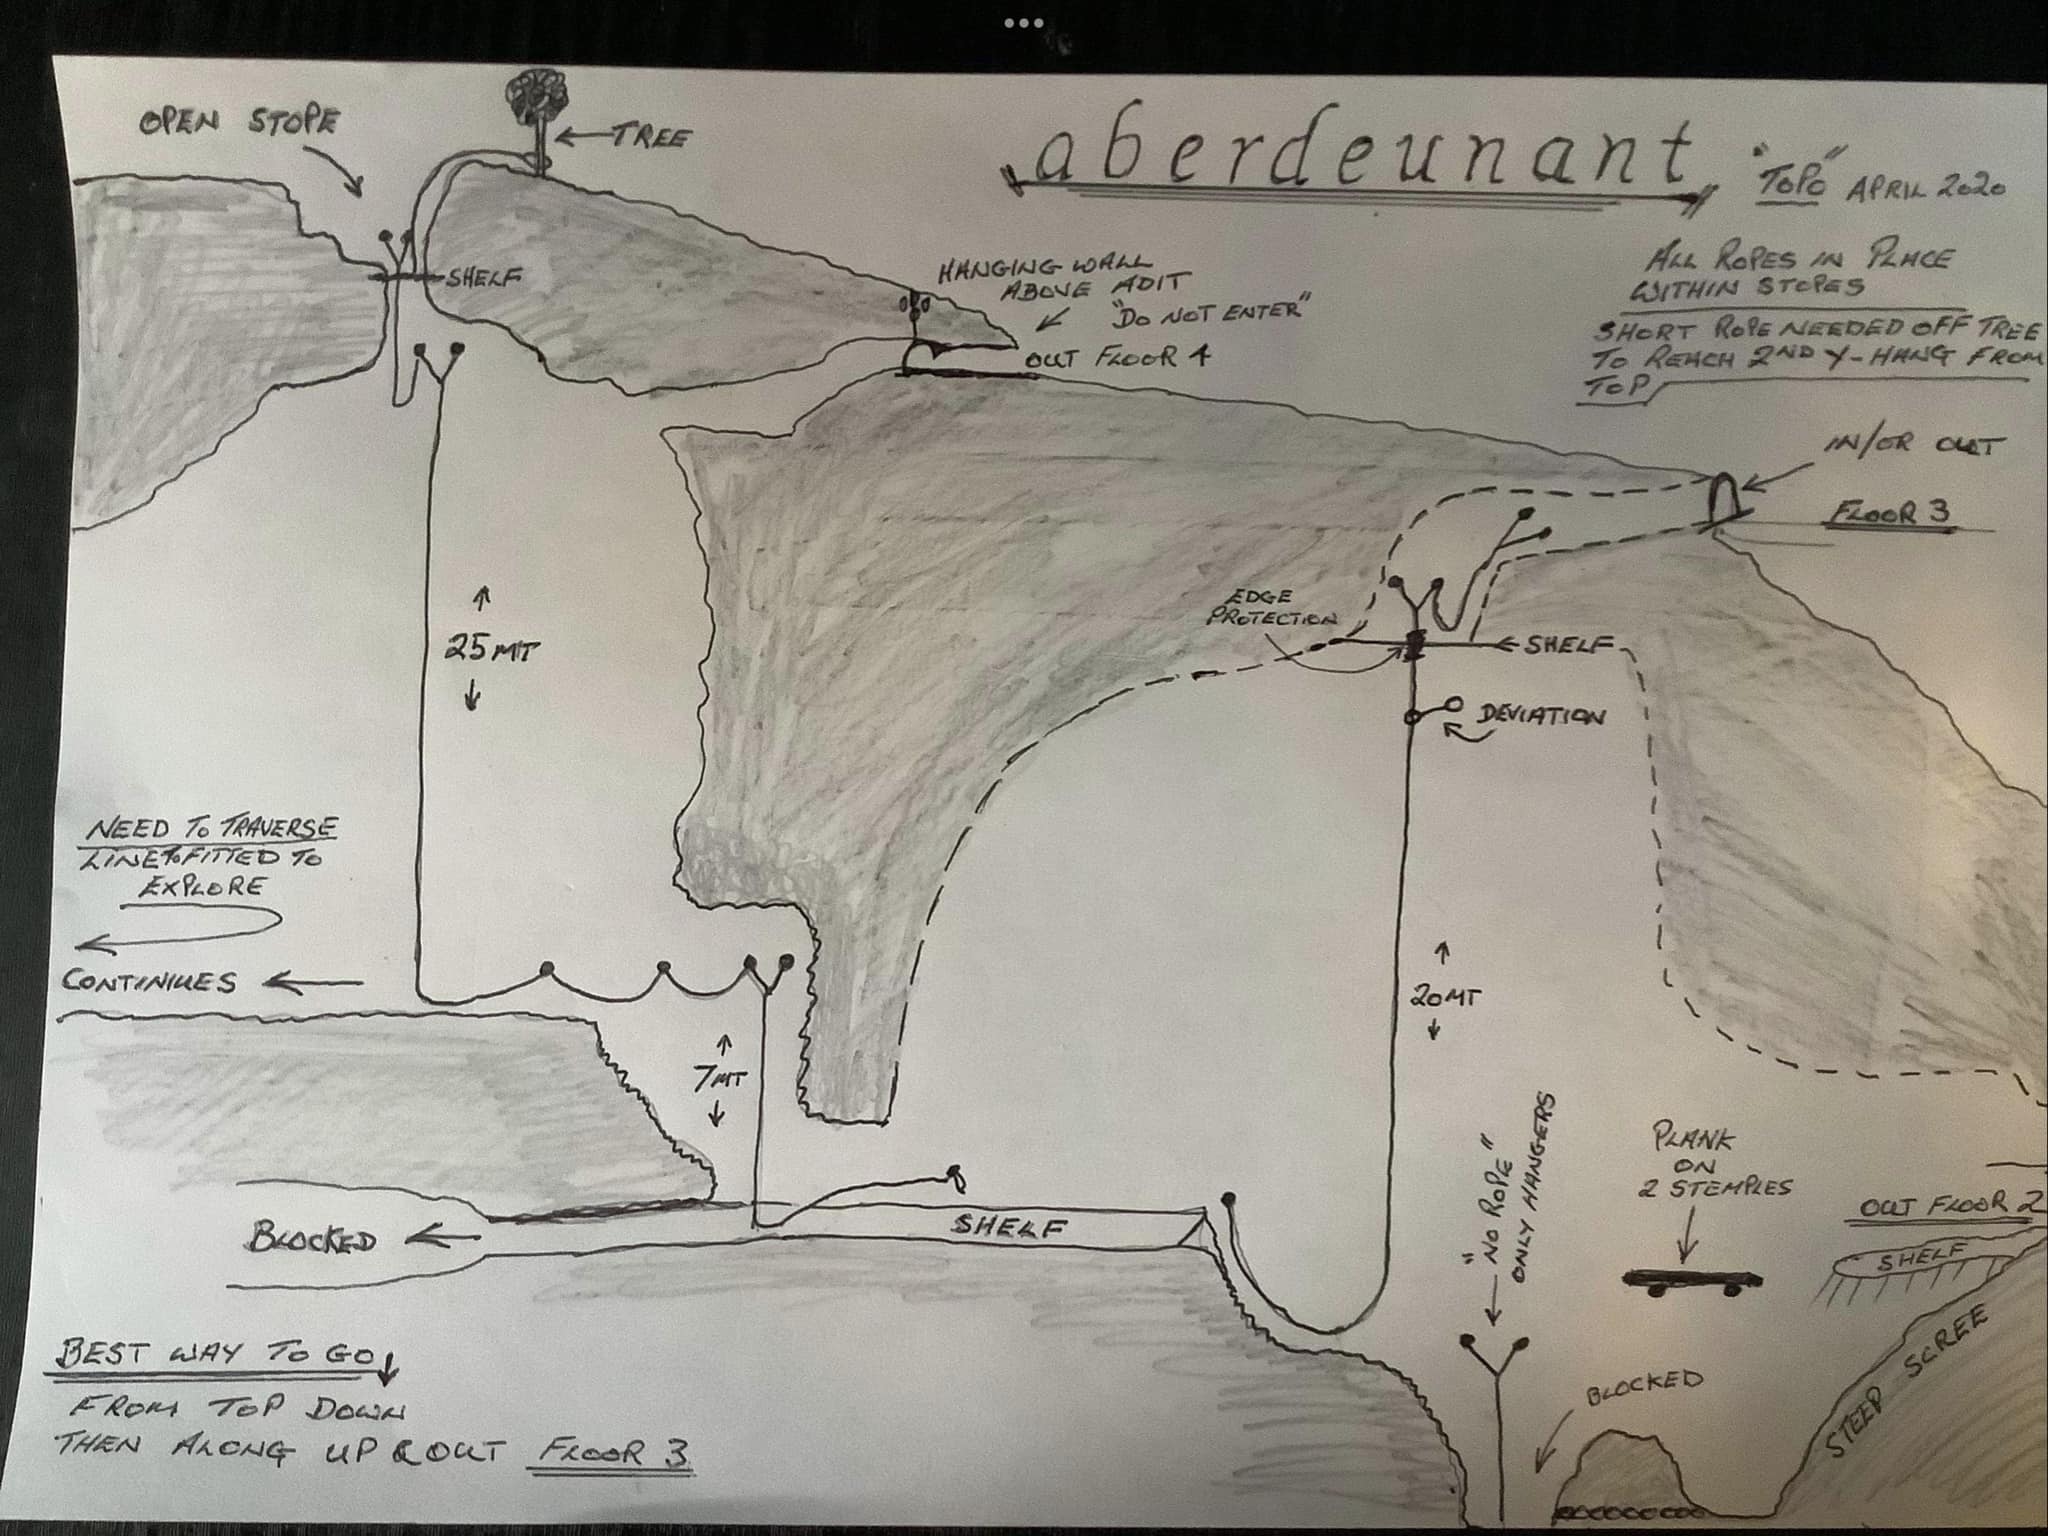 OPEN STOPE
TREE
aberdeunant
"TOPO" APRIL 2020
ALL ROPES IN PLACE
WITHIN STOPES
SHORT ROPE NEEDED OFF TREE
TO REACH 2ND Y-HANG FROM
TOP
SHELF
HANGING WALL
ABOVE ADIT
"DO NOT ENTER"
OUT FLOOR 4
IN/OR OUT
FLOOR 3
EDGE
PROTECTION
SHELF
DEVIATION
25MT
NEED TO TRAVERSE
LINE TO FITTED TO
EXPLORE
CONTINUES
7MT
20MT
"NO ROPE"
ONLY HANGERS
PLANK
ON
2 STEMPLES
OUT FLOOR 2
SHELF
STEEP SCREE
BLOCKED
SHELF
BLOCKED
BEST WAY TO GO
FROM TOP DOWN
THEN ALONG UP & OUT FLOOR 3